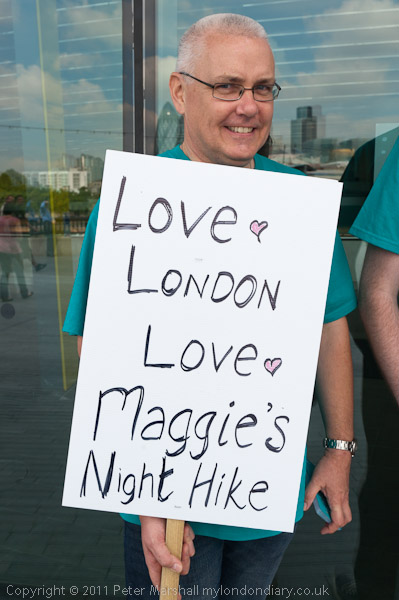 Love
London
Love
Maggie's
Night Hike
Copyright © 2011 Peter Marshall mylondondiary.co.uk